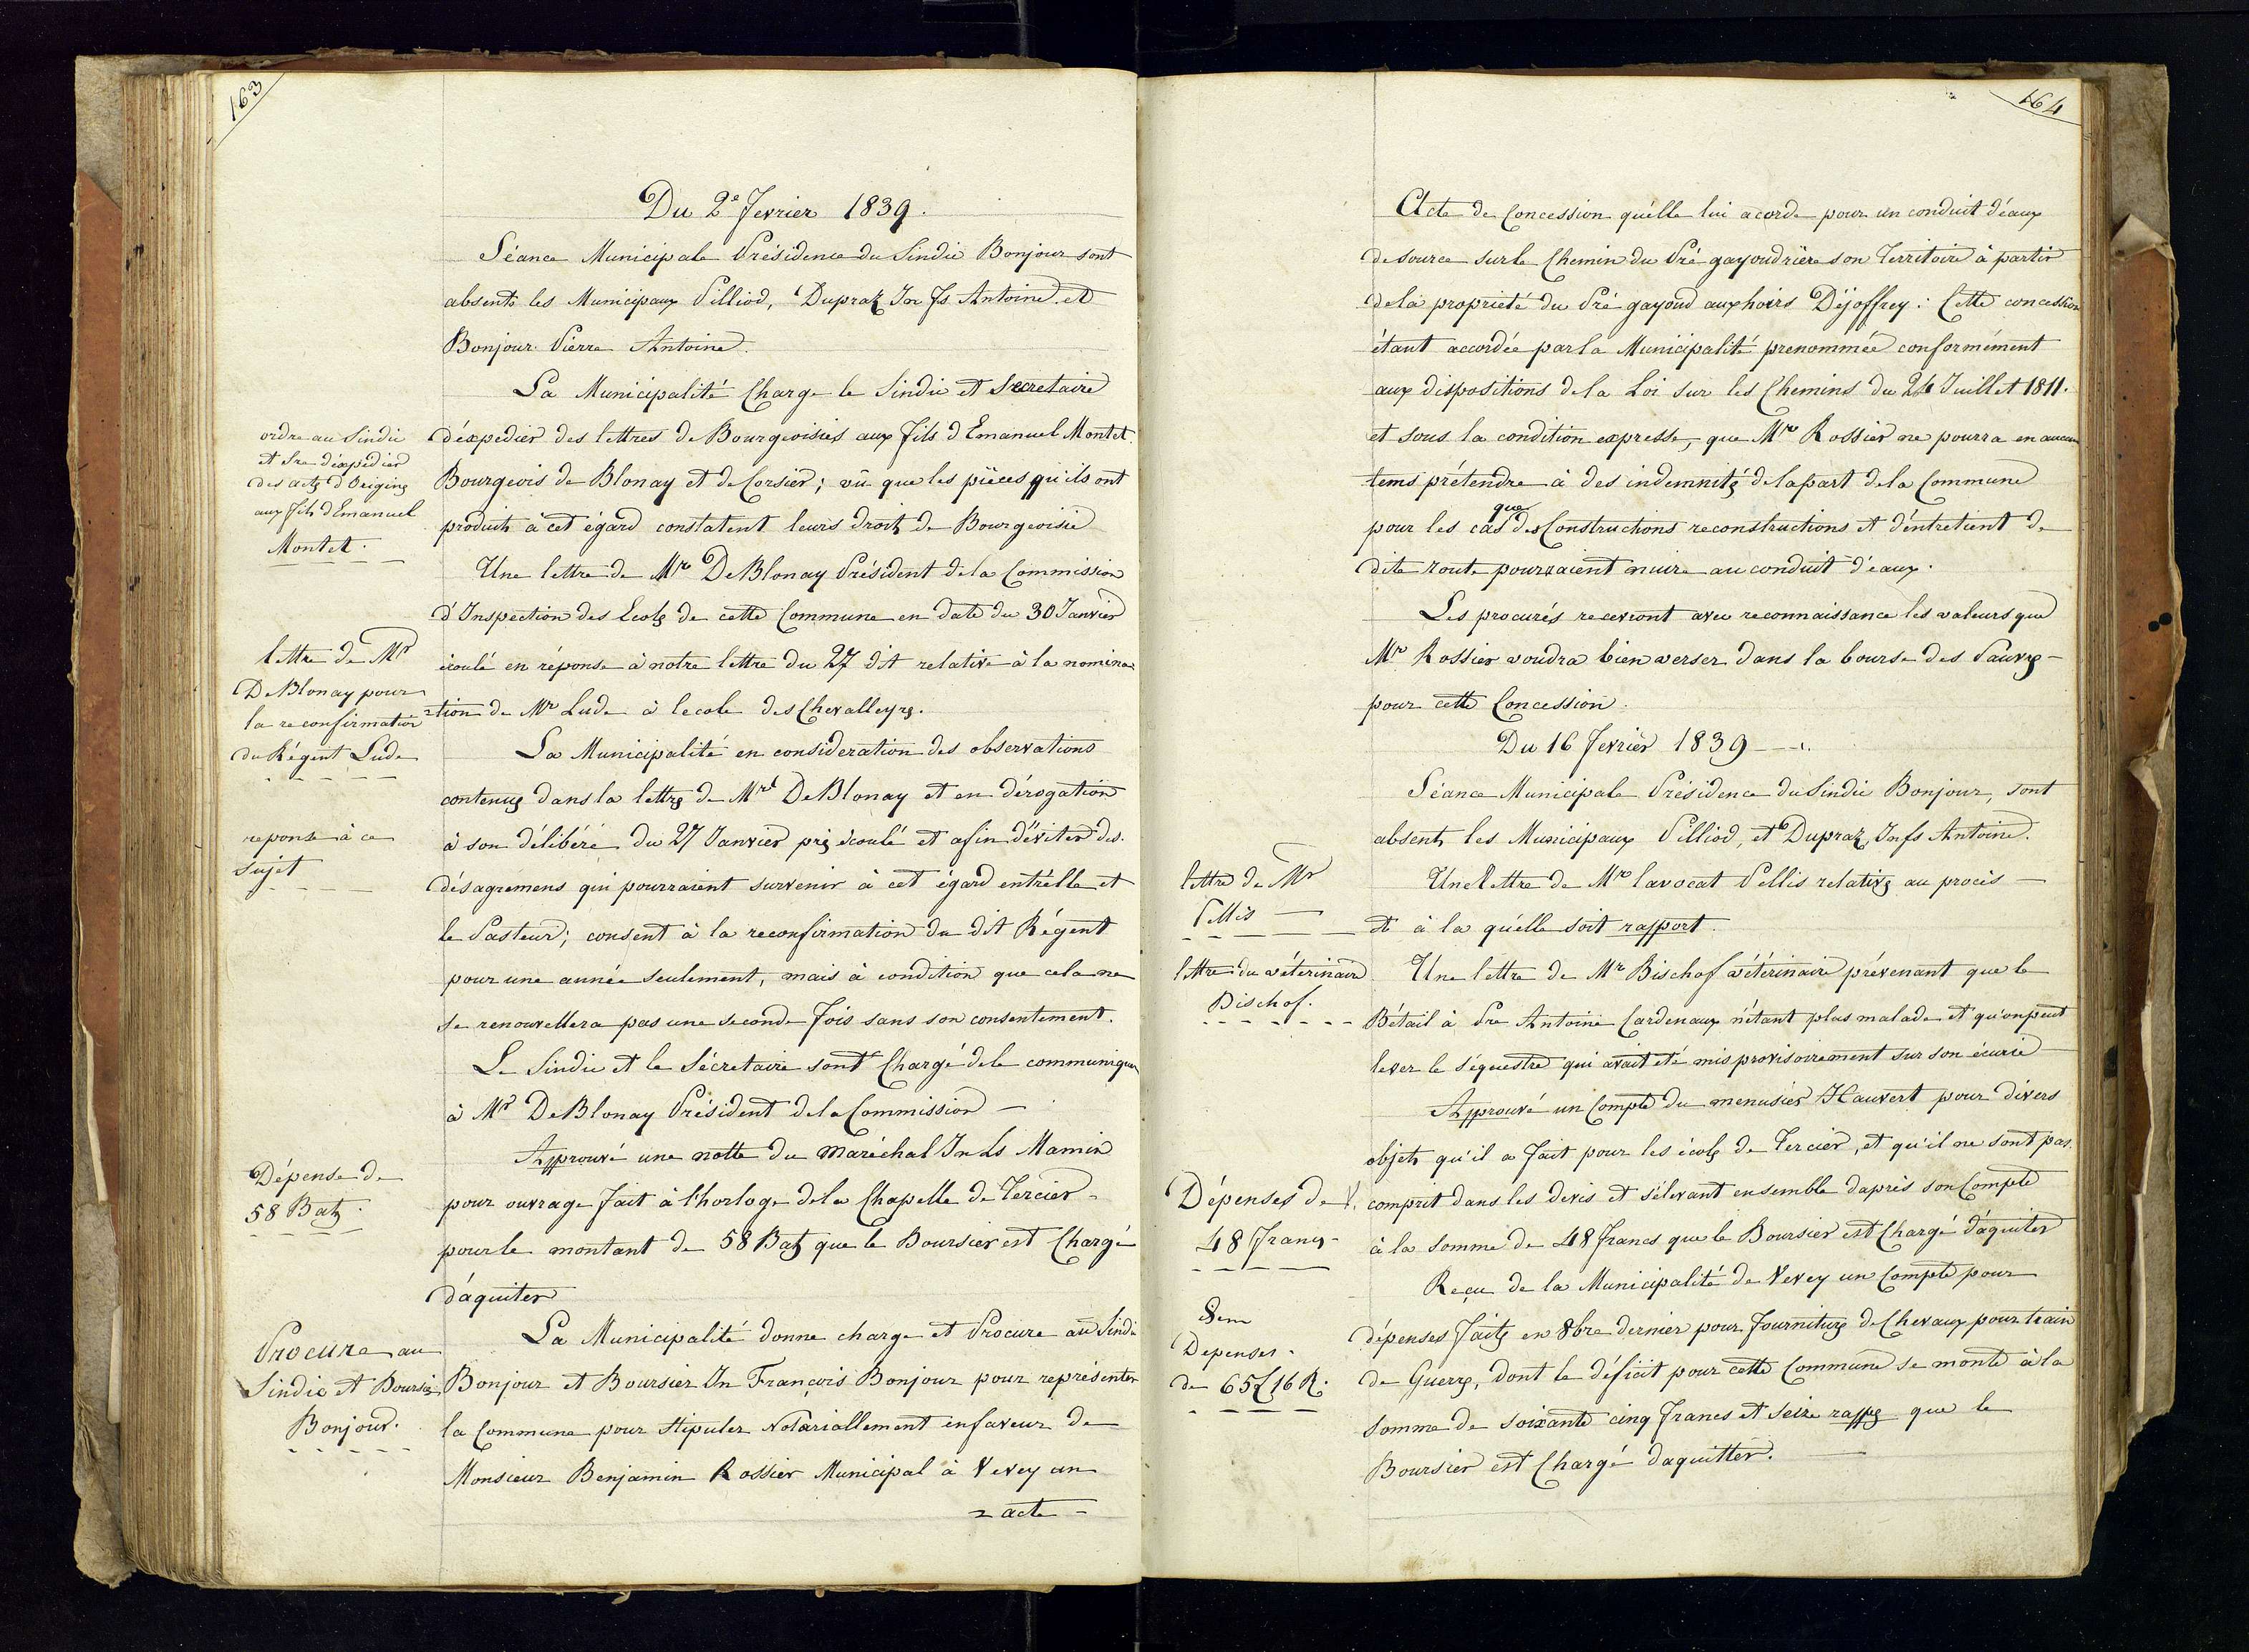 163
Du 2e Fevrier 1839.
Séance Municipale Présidence du Sindic Bonjour sont
absents les Municipaux Pilliod, Dupraz Jn Fs Antoine et
Bonjour Pierre Antoine.
La Municipalité Charge le Sindic et Secretaire
ordre au Sindic
et Sre d'expedier
des actes d'Origines
aux fils d'Emanuel
Montet.
d'éxpedier des lettres de Bourgeoisies aux fils d'Emanuel Montet
Bourgeois de Blonay et de Corsier; vû que les pièces qu'ils ont
produits à cet égard constatent leurs droits de Bourgeoisie
Une lettre de Mre DeBlonay Président de la Commission
d'Inspection des Ecoles de cette Commune en date du 30 Janvier
lettre de Mr
DeBlonay pour
la reconfirmation
du Régent Lude
écoulé en réponse à notre lettre du 27 dit relative à la nomina
=tion de Mr Lude à lecole des Chevalleyres.
La Municipalité en consideration des observations
contenues dans la lettres de Mre DeBlonay et en dérogation
reponse à ce
sujet
à son délibéré du 27 Janvier pres écoulé et afin d'éviter des
désagremens qui pourraient survenir à cet égard entr'elle et
le Pasteur; consent à la reconfirmation du dit Régent
pour une année seulement, mais à condition que cela ne
se renouvellera pas une seconde fois sans son consentement.
Le Sindic et le Sécretaire sont Chargé de le communiquer
à Mr DeBlonay Président de la Commission —
Approuvé une notte du Maréchal Jn Ls Mamin
Dépense de
58 Batz.
pour ouvrage fait à l'horloge de la Chapelle de Tercier
pour le montant de 58 Batz que le Boursier est Chargé
d'aquiter
La Municipalité donne charge et Procure au Sindic
Procure au
Sindic et Boursier
Bonjour.
Bonjour et Boursier Jn François Bonjour pour représenter
la Commune pour stipuler Notariallement en faveur de
Monsieur Benjamin Rossier Municipal à Vevey un
= acte =
164
Acte de Concession qu'elle lui acorde pour un conduit d'eaux
de source sur le Chemin du Pré gayoud rière son Territoire à partir
de la proprieté du Pré gayoud aux hoirs Déjoffrey: Cette concession
étant accordée par la Municipalité prenommée conformément
aux dispositions de la Loi sur les Chemins du 24 Juillet 1811.
et sous la condition expresse, que Mre Rossier ne pourra en aucun
tems prétendre à des indemnités de la part de la Commune
que
pour les cas des Constructions reconstructions et d'entretient de
dite route pourraient nuire au conduit d'eaux.
Les procurés recevront avec reconnaissance les valeurs que
Mr Rossier voudra bien verser dans la bourse des Pauvres
pour cette Concession.
Du 16 fevrier 1839
Séance Municipale Présidence du Sindic Bonjour, sont
absents les Municipaux Pilliod, et Dupraz Jn fs Antoine.
lettre de Mr
Pellis
Une lettre de Mre lavocat Pellis relatives au procès
et à la qu'elle soit rapport.
lettre du véterinaire
Bischof.
Une lettre de Mr Bischof vétérinaire prévenant que le
Bétail à Pre Antoine Cardenaux n'étant plus malade et qu'on peut
lever le séquestre qui avait eté mis provisoirement sur son écurie
Approuvé un Compte du menusier Hauvert pour divers
objets qu'il a fait pour les écoles de Tercier, et qu'il ne sont pas
Dépenses de
48 francs
comprit dans les devis et s'élevant ensemble dapres son Compte
à la somme de 48 francs que le Boursier est Chargé d'aquiter
Reçu de la Municipalité de Vevey un Compte pour
Idem
Depenses
de 65 £ 16 R.
dépenses faites en 8bre dernier pour fournitures de Chevaux pour train
de Guerre, dont le déficit pour cette Commune se monte à la
somme de soixante cinq francs et seize rappes que le
Boursier est Chargé daquitter.